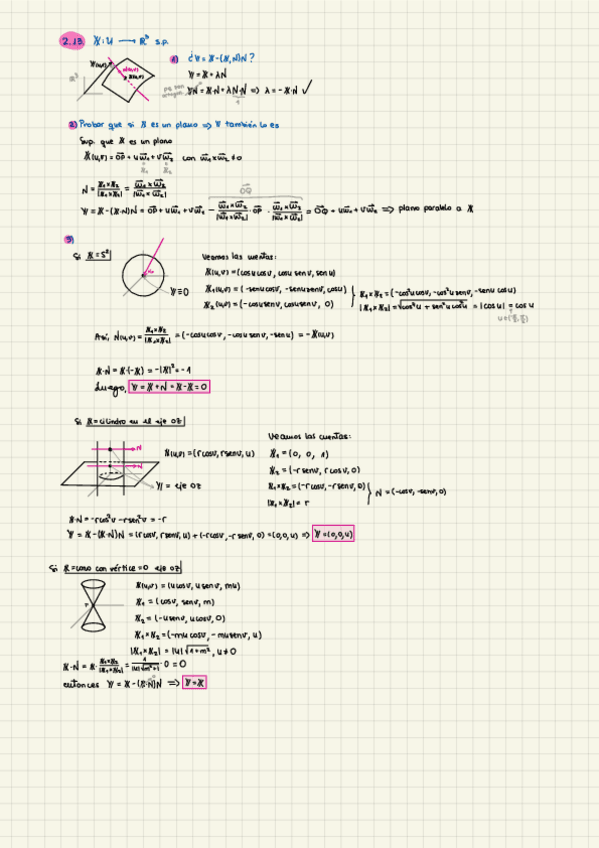 2.13 𝕏: U → ℝ³ s.p.
1) ¿𝕐 = 𝕏 - (𝕏,N)N?
𝕐 = 𝕏 + λN
𝕐N = 𝕏·N + λN·N => λ = -𝕏·N ✓
2) Probar que si 𝕏 es un plano => 𝕐 también lo es
Sup. que 𝕏 es un plano
𝕏(u,v) = OP + uw₁ + vw₂ con w₁×w₂ ≠ 0
N = 𝕏₁×𝕏₂/|𝕏₁×𝕏₂| = w₁×w₂/|w₁×w₂|
OQ
𝕐 = 𝕏 - (𝕏·N)N = OP + uw₁ + vw₂ - w₁×w₂/|w₁×w₂| · OP · w₁×w₂/|w₁×w₂| = OQ + uw₁ + vw₂ => plano paralelo a 𝕏
3)
Si 𝕏 = S²
Veamos las cuentas:
𝕏(u,v) = (cosu cosv, cosu senv, senu)
𝕐≡0
𝕏₁(u,v) = (-senu cosv, -senu senv, cosu)
𝕏₂(u,v) = (-cosu senv, cosu senv, 0)
𝕏₁×𝕏₂ = (-cos²u cosv, -cos²u senv, -senu cosu)
|𝕏₁×𝕏₂| = √cos⁴u + sen²u cos²u = |cosu| = cosu
Así, N(u,v) = 𝕏₁×𝕏₂/|𝕏₁×𝕏₂| = (-cosu cosv, -cosu senv, -senu) = -𝕏(u,v)
𝕏·N = 𝕏·(-𝕏) = -|𝕏|² = -1
Luego, 𝕐 = 𝕏 + N = 𝕏 - 𝕏 = 0
Si 𝕏 = cilindro en el eje OZ
Veamos las cuentas:
N
N
𝕏(u,v) = (r cosv, r senv, u)
𝕏₁ = (0, 0, 1)
𝕏₂ = (-r senv, r cosv, 0)
𝕐 = eje OZ
𝕏₁×𝕏₂ = (-r cosv, -r senv, 0)
|𝕏₁×𝕏₂| = r
N = (-cosv, -senv, 0)
𝕏·N = -rcos²v - rsen²v = -r
𝕐 = 𝕏 - (𝕏·N)N = (r cosv, r senv, u) + (-r cosv, -r senv, 0) = (0,0,u) => 𝕐 = (0,0,u)
Si 𝕏 = cono con vértice = 0 eje OZ
𝕏(u,v) = (u cosv, u senv, mu)
𝕏₁ = (cosv, senv, m)
𝕏₂ = (-u senv, u cosv, 0)
𝕏₁×𝕏₂ = (-mu cosv, -mu senv, u)
|𝕏₁×𝕏₂| = |u|√1+m², u≠0
𝕏·N = 𝕏·𝕏₁×𝕏₂/|𝕏₁×𝕏₂| = 1/|u|√m²+1 · 0 = 0
entonces 𝕐 = 𝕏 - (𝕏·N)N => 𝕐 = 𝕏